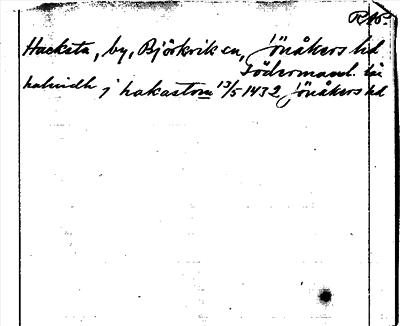 RAp.
Hacksta, by, Björkvik sn, Jönåkers hd
Södermanl. län
halvidh j hakastom 13/5 1432 Jönåkers hd